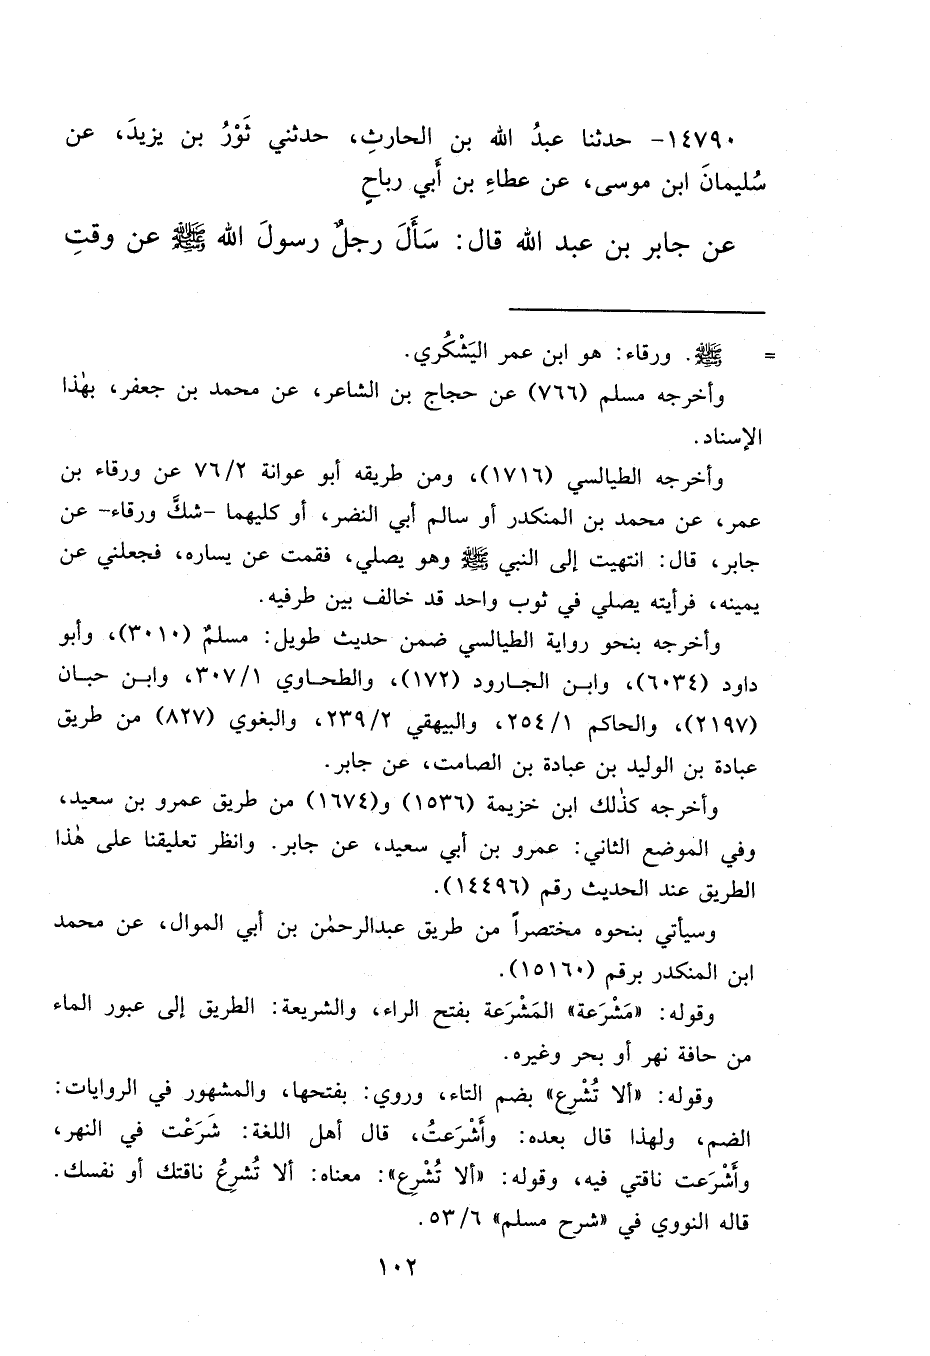 ١٤٧٩٠- حدثنا عبدُ الله بن الحارثِ، حدثني ثَوْرُ بن يزيدَ، عن
سُليمانَ ابن موسى، عن عطاءِ بن أَبي رباحٍ
عن جابر بن عبد الله قال: سَأَلَ رجلٌ رسولَ الله ﷺ عن وقتِ
= ﷺ. ورقاء: هو ابن عمر اليَشْكُري.
وأخرجه مسلم (٧٦٦) عن حجاج بن الشاعر، عن محمد بن جعفر، بهٰذا
الإسناد.
وأخرجه الطيالسي (١٧١٦)، ومن طريقه أبو عوانة ٧٦/٢ عن ورقاء بن
عمر، عن محمد بن المنكدر أو سالم أبي النضر، أو كليهما -شكَّ ورقاء- عن
جابر، قال: انتهيت إلى النبي ﷺ وهو يصلي، فقمت عن يساره، فجعلني عن
يمينه، فرأيته يصلي في ثوب واحد قد خالف بين طرفيه.
وأخرجه بنحو رواية الطيالسي ضمن حديث طويل: مسلمٌ (٣٠١٠)، وأبو
داود (٦٠٣٤)، وابن الجارود (١٧٢)، والطحاوي ٣٠٧/١، وابن حبان
(٢١٩٧)، والحاكم ٢٥٤/١، والبيهقي ٢٣٩/٢، والبغوي (٨٢٧) من طريق
عبادة بن الوليد بن عبادة بن الصامت، عن جابر.
وأخرجه كذٰلك ابن خزيمة (١٥٣٦) و(١٦٧٤) من طريق عمرو بن سعيد،
وفي الموضع الثاني: عمرو بن أبي سعيد، عن جابر. وانظر تعليقنا على هٰذا
الطريق عند الحديث رقم (١٤٤٩٦).
وسيأتي بنحوه مختصراً من طريق عبدالرحمٰن بن أبي الموال، عن محمد
ابن المنكدر برقم (١٥١٦٠).
وقوله: «مَشْرَعة» المَشْرَعة بفتح الراء، والشريعة: الطريق إلى عبور الماء
من حافة نهر أو بحر وغيره.
وقوله: «ألا تُشْرِع» بضم التاء، وروي: بفتحها، والمشهور في الروايات:
الضم، ولهذا قال بعده: وأَشْرَعتُ، قال أهل اللغة: شَرَعْت في النهر،
وأَشْرَعت ناقتي فيه، وقوله: «ألا تُشْرِع»: معناه: ألا تُشرِعُ ناقتك أو نفسك.
قاله النووي في «شرح مسلم» ٥٣/٦.
١٠٢